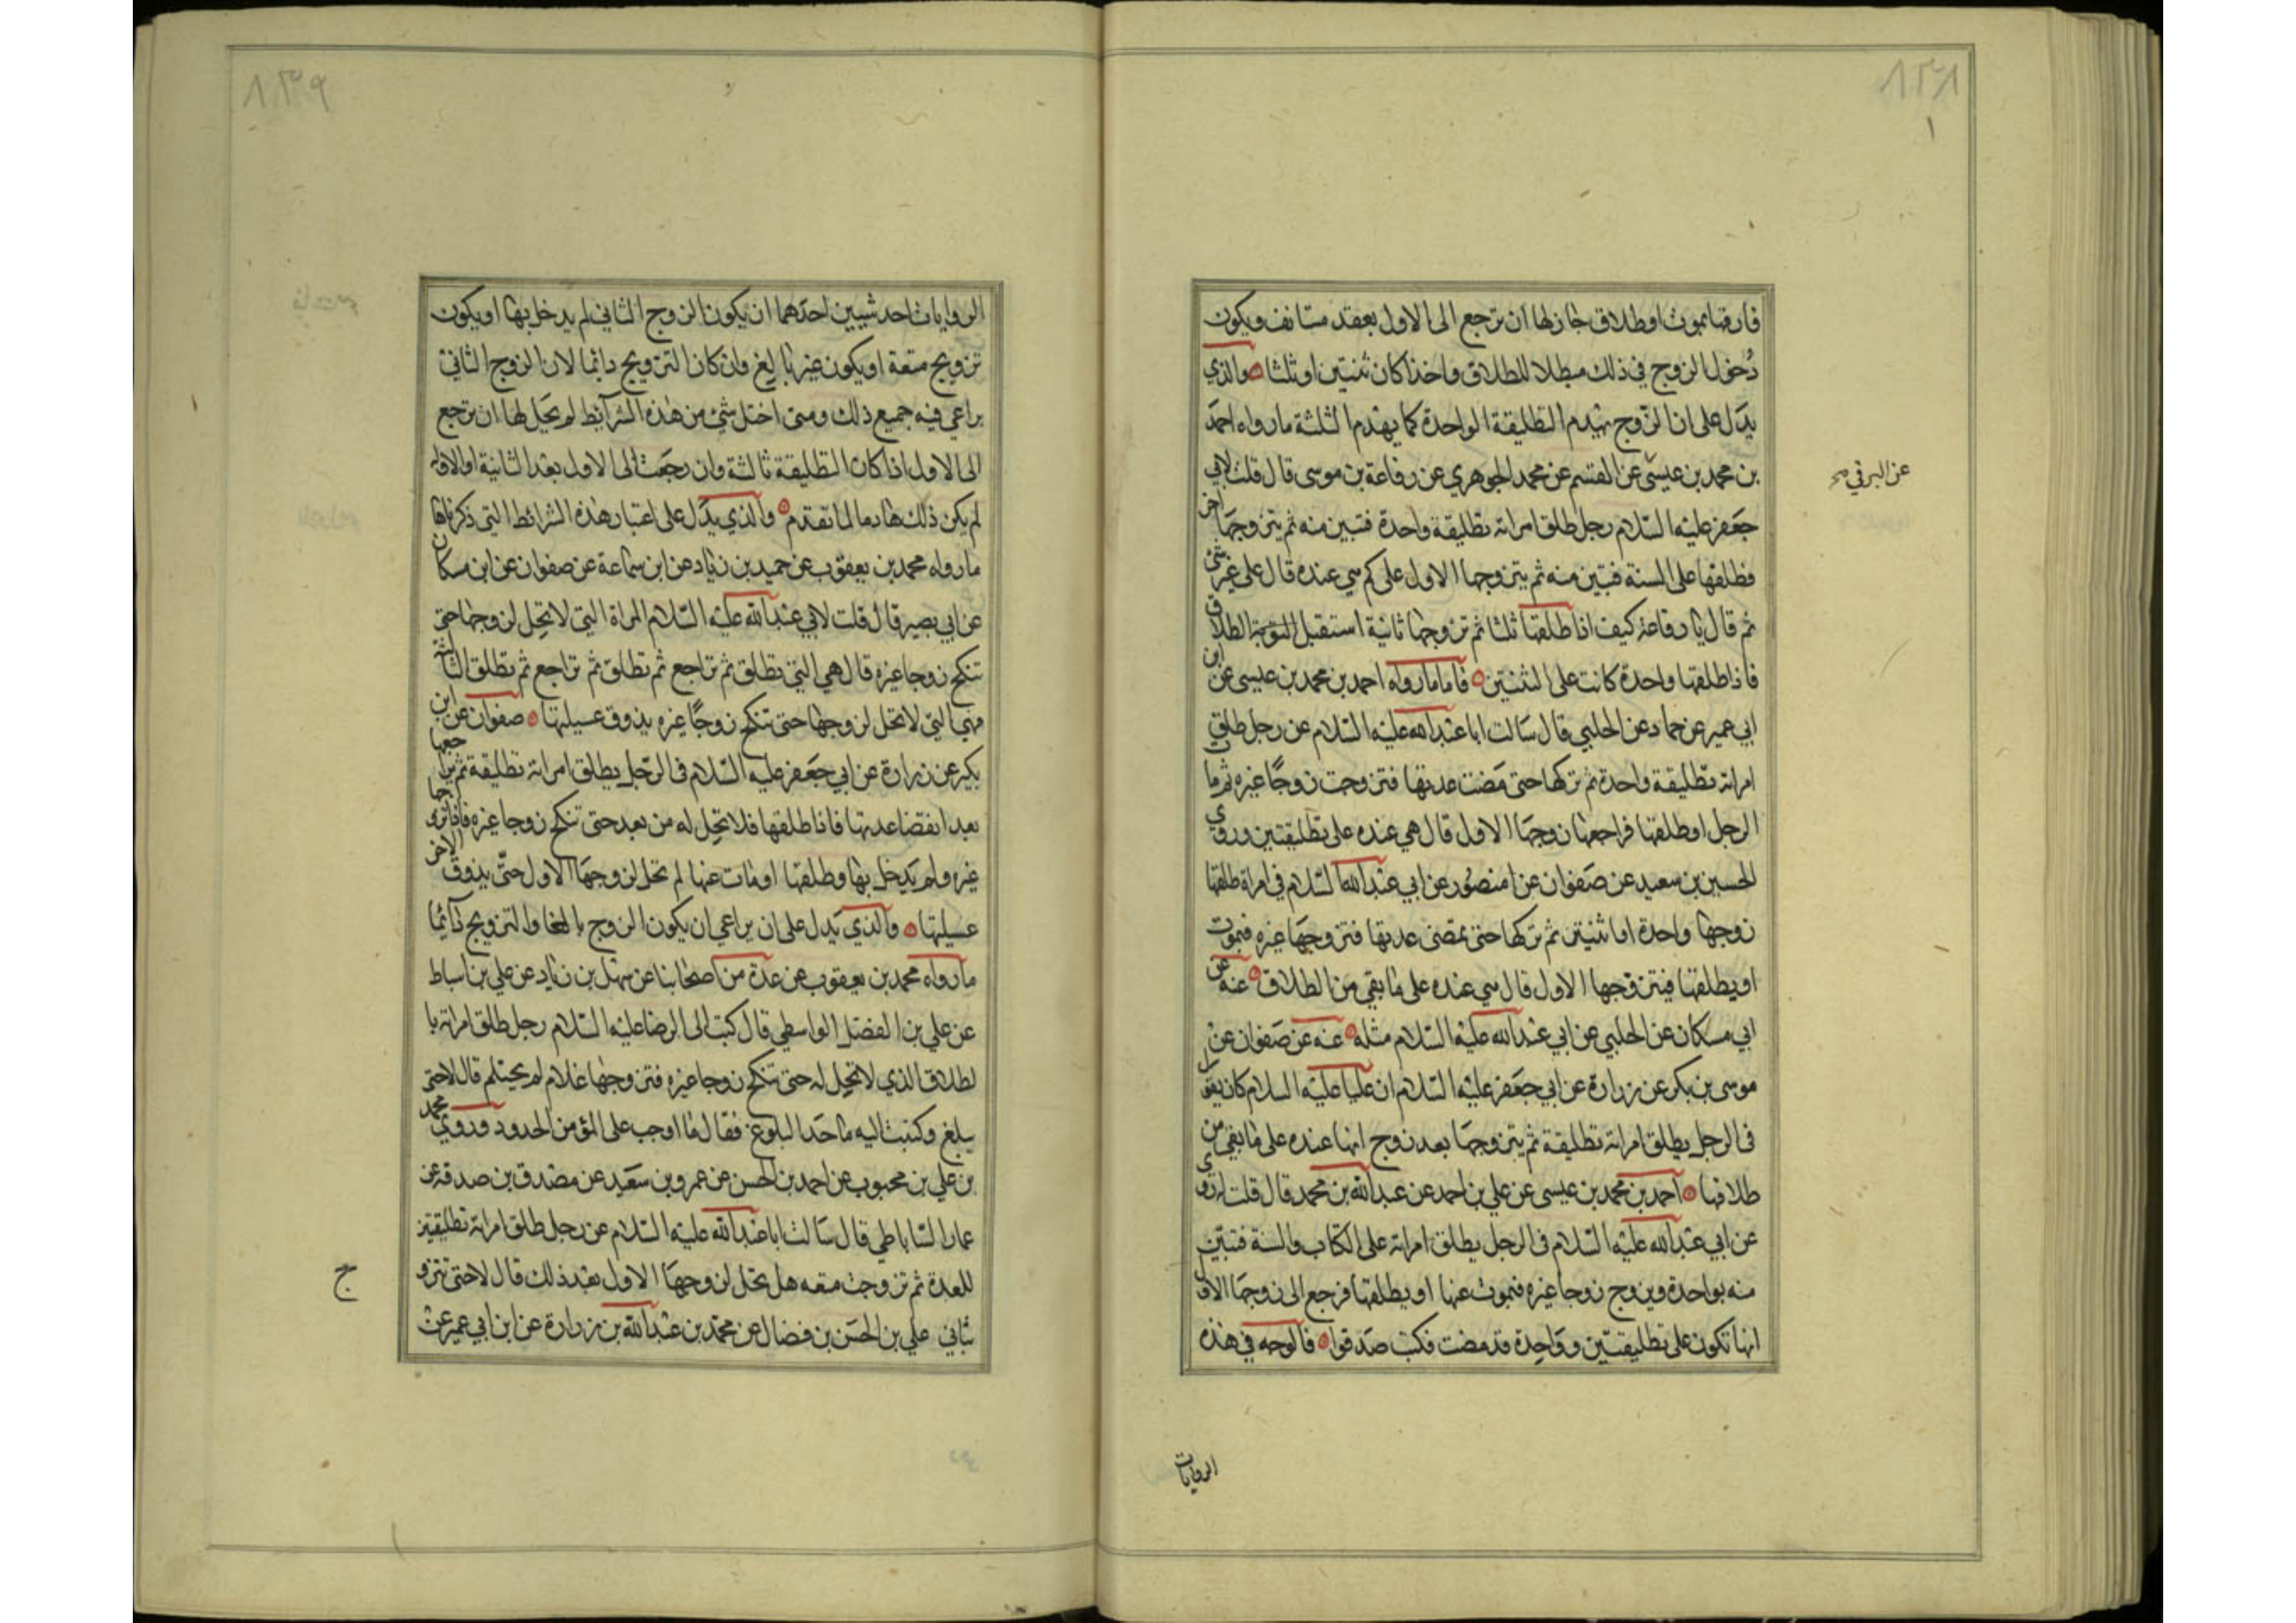 ٨٣٨
فارقها بموت او طلاق جاز لها ان ترجع الى الاول بعقد مستانف ويكون
دُخول الزوج في ذلك مبطلا للطلاق واحدا كان ثنتين او ثلثا والذي
يدل على ان الزوج يهدم التطليقة الواحدة كما يهدم الثلثة ما رواه احمد
بن محمد بن عيسى عن القسم عن محمد الجوهري عن رفاعة بن موسى قال قلت لابي
عن البرقي صح
جعفر عليه السلام رجل طلق امراته تطليقة واحدة فتبين منه ثم يتزوجها اخر
فطلقها على السنة فتبين منه ثم يتزوجها الاول على كم هي عنده قال على غير شئ
ثم قال يا رفاعة كيف اذا طلقها ثلثا ثم تزوجها ثانية استقبل الطلاق
فاذا طلقها واحدة كانت على الثنتين فاما ما رواه احمد بن محمد بن عيسى عن ابن
ابي عمير عن حماد عن الحلبي قال سالت ابا عبدالله عليه السلام عن رجل طلق
امراته تطليقة واحدة ثم تركها حتى مضت عدتها فتزوجت زوجًا غيره ثم مات
الرجل او طلقها فراجعها زوجها الاول قال هي عنده على تطليقتين وروي
الحسين بن سعيد عن صفوان عن منصور عن ابي عبدالله السلام في امراة طلقها
زوجها واحدة او اثنتين ثم تركها حتى تمضى عدتها فتزوجها غيره فيموت
او يطلقها فيتزوجها الاول قال هي عنده على ما بقي من الطلاق عنه عن
ابي مسكان عن الحلبي عن ابي عبدالله عليه السلام مثله عنه عن صفوان عن
موسى بن بكر عن زرارة عن ابي جعفر عليه السلام ان عليا عليه السلام كان يقول
فى الرجل يطلق امراته تطليقة ثم يتزوجها بعد زوج انها عنده على ما بقي من
طلاقها احمد بن محمد بن عيسى عن علي بن احمد عن عبدالله بن محمد قال قلت له روي
عن ابي عبدالله عليه السلام فى الرجل يطلق امراته على الكتاب والسنة فتبين
منه بواحدة ويزوج زوجا غيره فيموت عنها او يطلقها فرجع الى زوجها الاول
انها تكون على تطليقتين وواحدة قد مضت فكتب صدقوا فالوجه في هذه
الروايات
٨٣٩
الروايات احد شيئين احدهما ان يكون الزوج الثاني لم يدخل بها او يكون
تزويج متعة او يكون غير بالغ وان كان التزويج دائما لان الزوج الثاني
يراعي فيه جميع ذلك ومتى اختل شئ من هذه الشرائط لم يحل لها ان ترجع
الى الاول اذا كان التطليقة ثالثة وان رجعت الى الاول بعد الثانية او الاولى
لم يكن ذلك هادما لما تقدم والذي يدل على اعتبار هذه الشرائط التي ذكرناها
ما رواه محمد بن يعقوب عن حميد بن زياد عن ابن سماعة عن صفوان عن ابن مسكان
عن ابي بصير قال قلت لابي عبدالله عليه السلام المراة التي لا تحل لزوجها حتى
تنكح زوجا غيره قال هي التي تطلق ثم تراجع ثم تطلق ثم تراجع ثم تطلق الثالثة
فهي التي لا تحل لزوجها حتى تنكح زوجًا غيره يذوق عسيلتها صفوان عن ابن
بكير عن زرارة عن ابي جعفر عليه السلام فى الرجل يطلق امراته تطليقة ثم يراجعها
بعد انقضا عدتها فاذا طلقها فلا تحل له من بعد حتى تنكح زوجا غيره فاذا تزوجها
غيره ولم يدخل بها وطلقها او مات عنها لم تحل لزوجها الاول حتّى يذوق الاخر
عسيلتها والذي يدل على ان يراعي ان يكون الزوج بالغا والتزويج دآئما
ما رواه محمد بن يعقوب عن عدة من اصحابنا عن سهل بن زياد عن علي بن اسباط
عن علي بن الفضل الواسطي قال كتبت الى الرضا عليه السلام رجل طلق امراته با
لطلاق الذي لا تحل له حتى تنكح زوجا غيره فتزوجها غلام لم يحتلم قال لا حتى
يبلغ وكتبت اليه ما حد البلوغ فقال ما اوجب على المؤمن الحدود وروي محمد
بن علي بن محبوب عن احمد بن الحسن عن عمرو بن سعيد عن مصدق بن صدقة عن
عمار الساباطي قال سالت ابا عبدالله عليه السلام عن رجل طلق امراته تطليقتين
للعدة ثم تزوجت متعه هل تحل لزوجها الاول بعد ذلك قال لا حتى تتزو
ج
بثاني علي بن الحسن بن فضال عن محمد بن عبدالله بن زرارة عن ابن ابي عمير عن